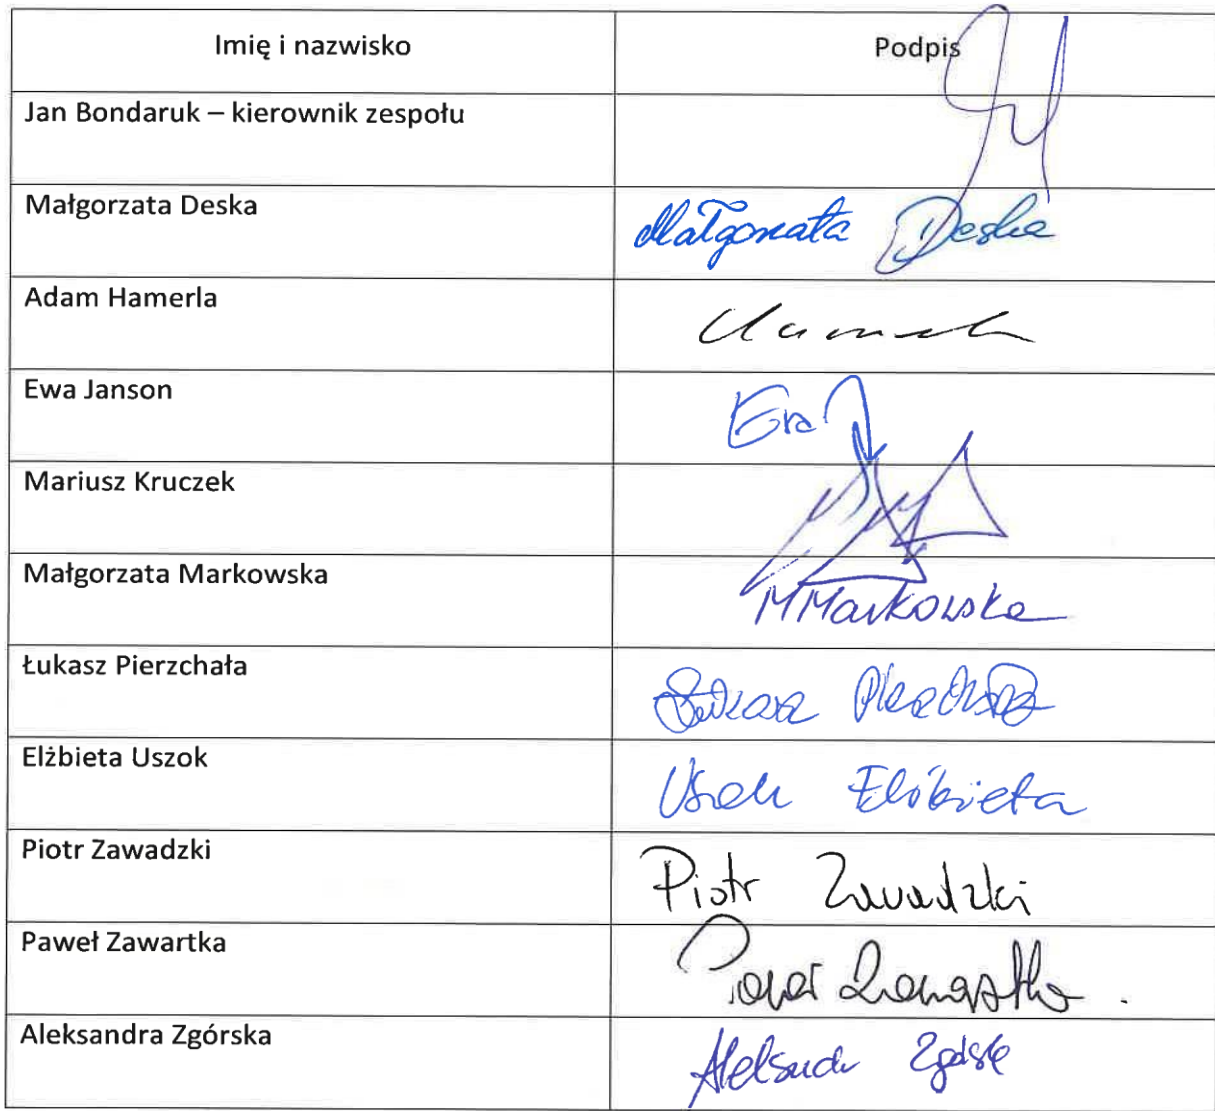 Imię i nazwisko Podpis
Jan Bondaruk – kierownik zespołu
Małgorzata Deska Małgorzata Deska
Adam Hamerla
Ewa Janson Ewa
Mariusz Kruczek
Małgorzata Markowska MMarkowska
Łukasz Pierzchała Łukasz
Elżbieta Uszok Uszok Elżbieta
Piotr Zawadzki Piotr Zawadzki
Paweł Zawartka Paweł Zawartka
Aleksandra Zgórska